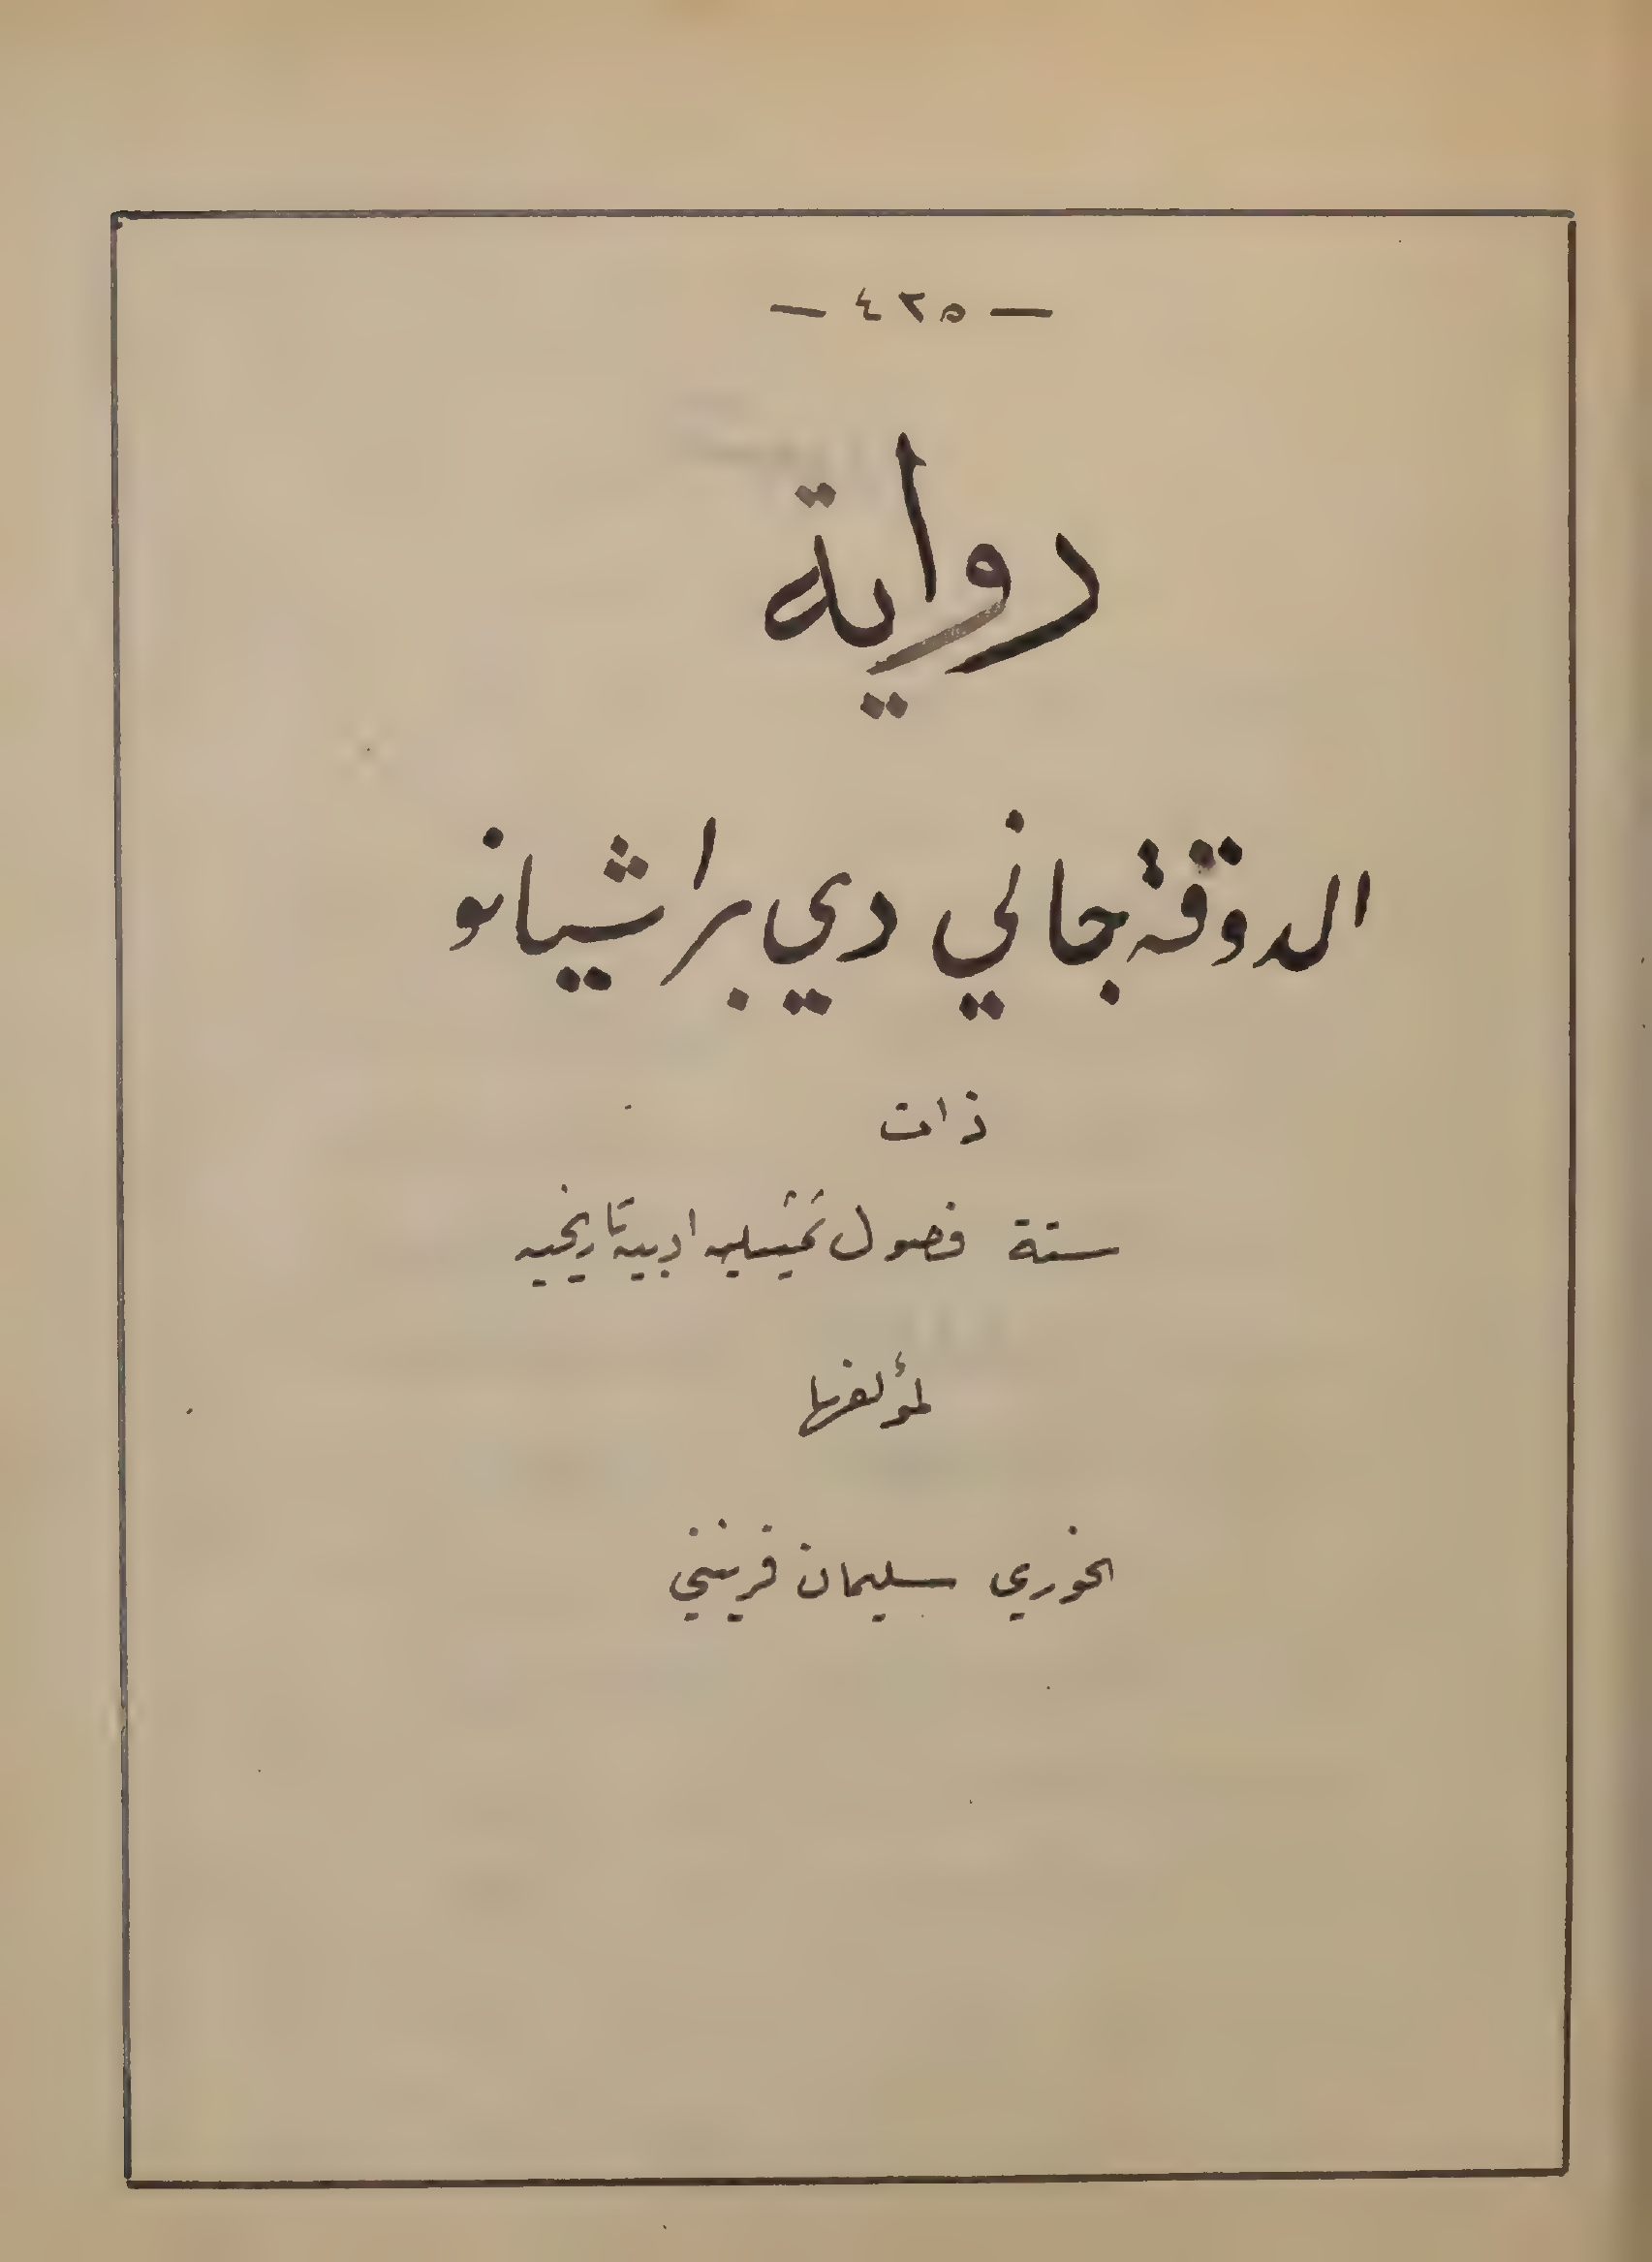 — ٤٢٥ —
رواية
الدوقة جاني دي براشيانو
ذات
ستة فصول تمثيليه ادبية تاريخيه
لمؤلفها
الخوري سليمان فرينيني